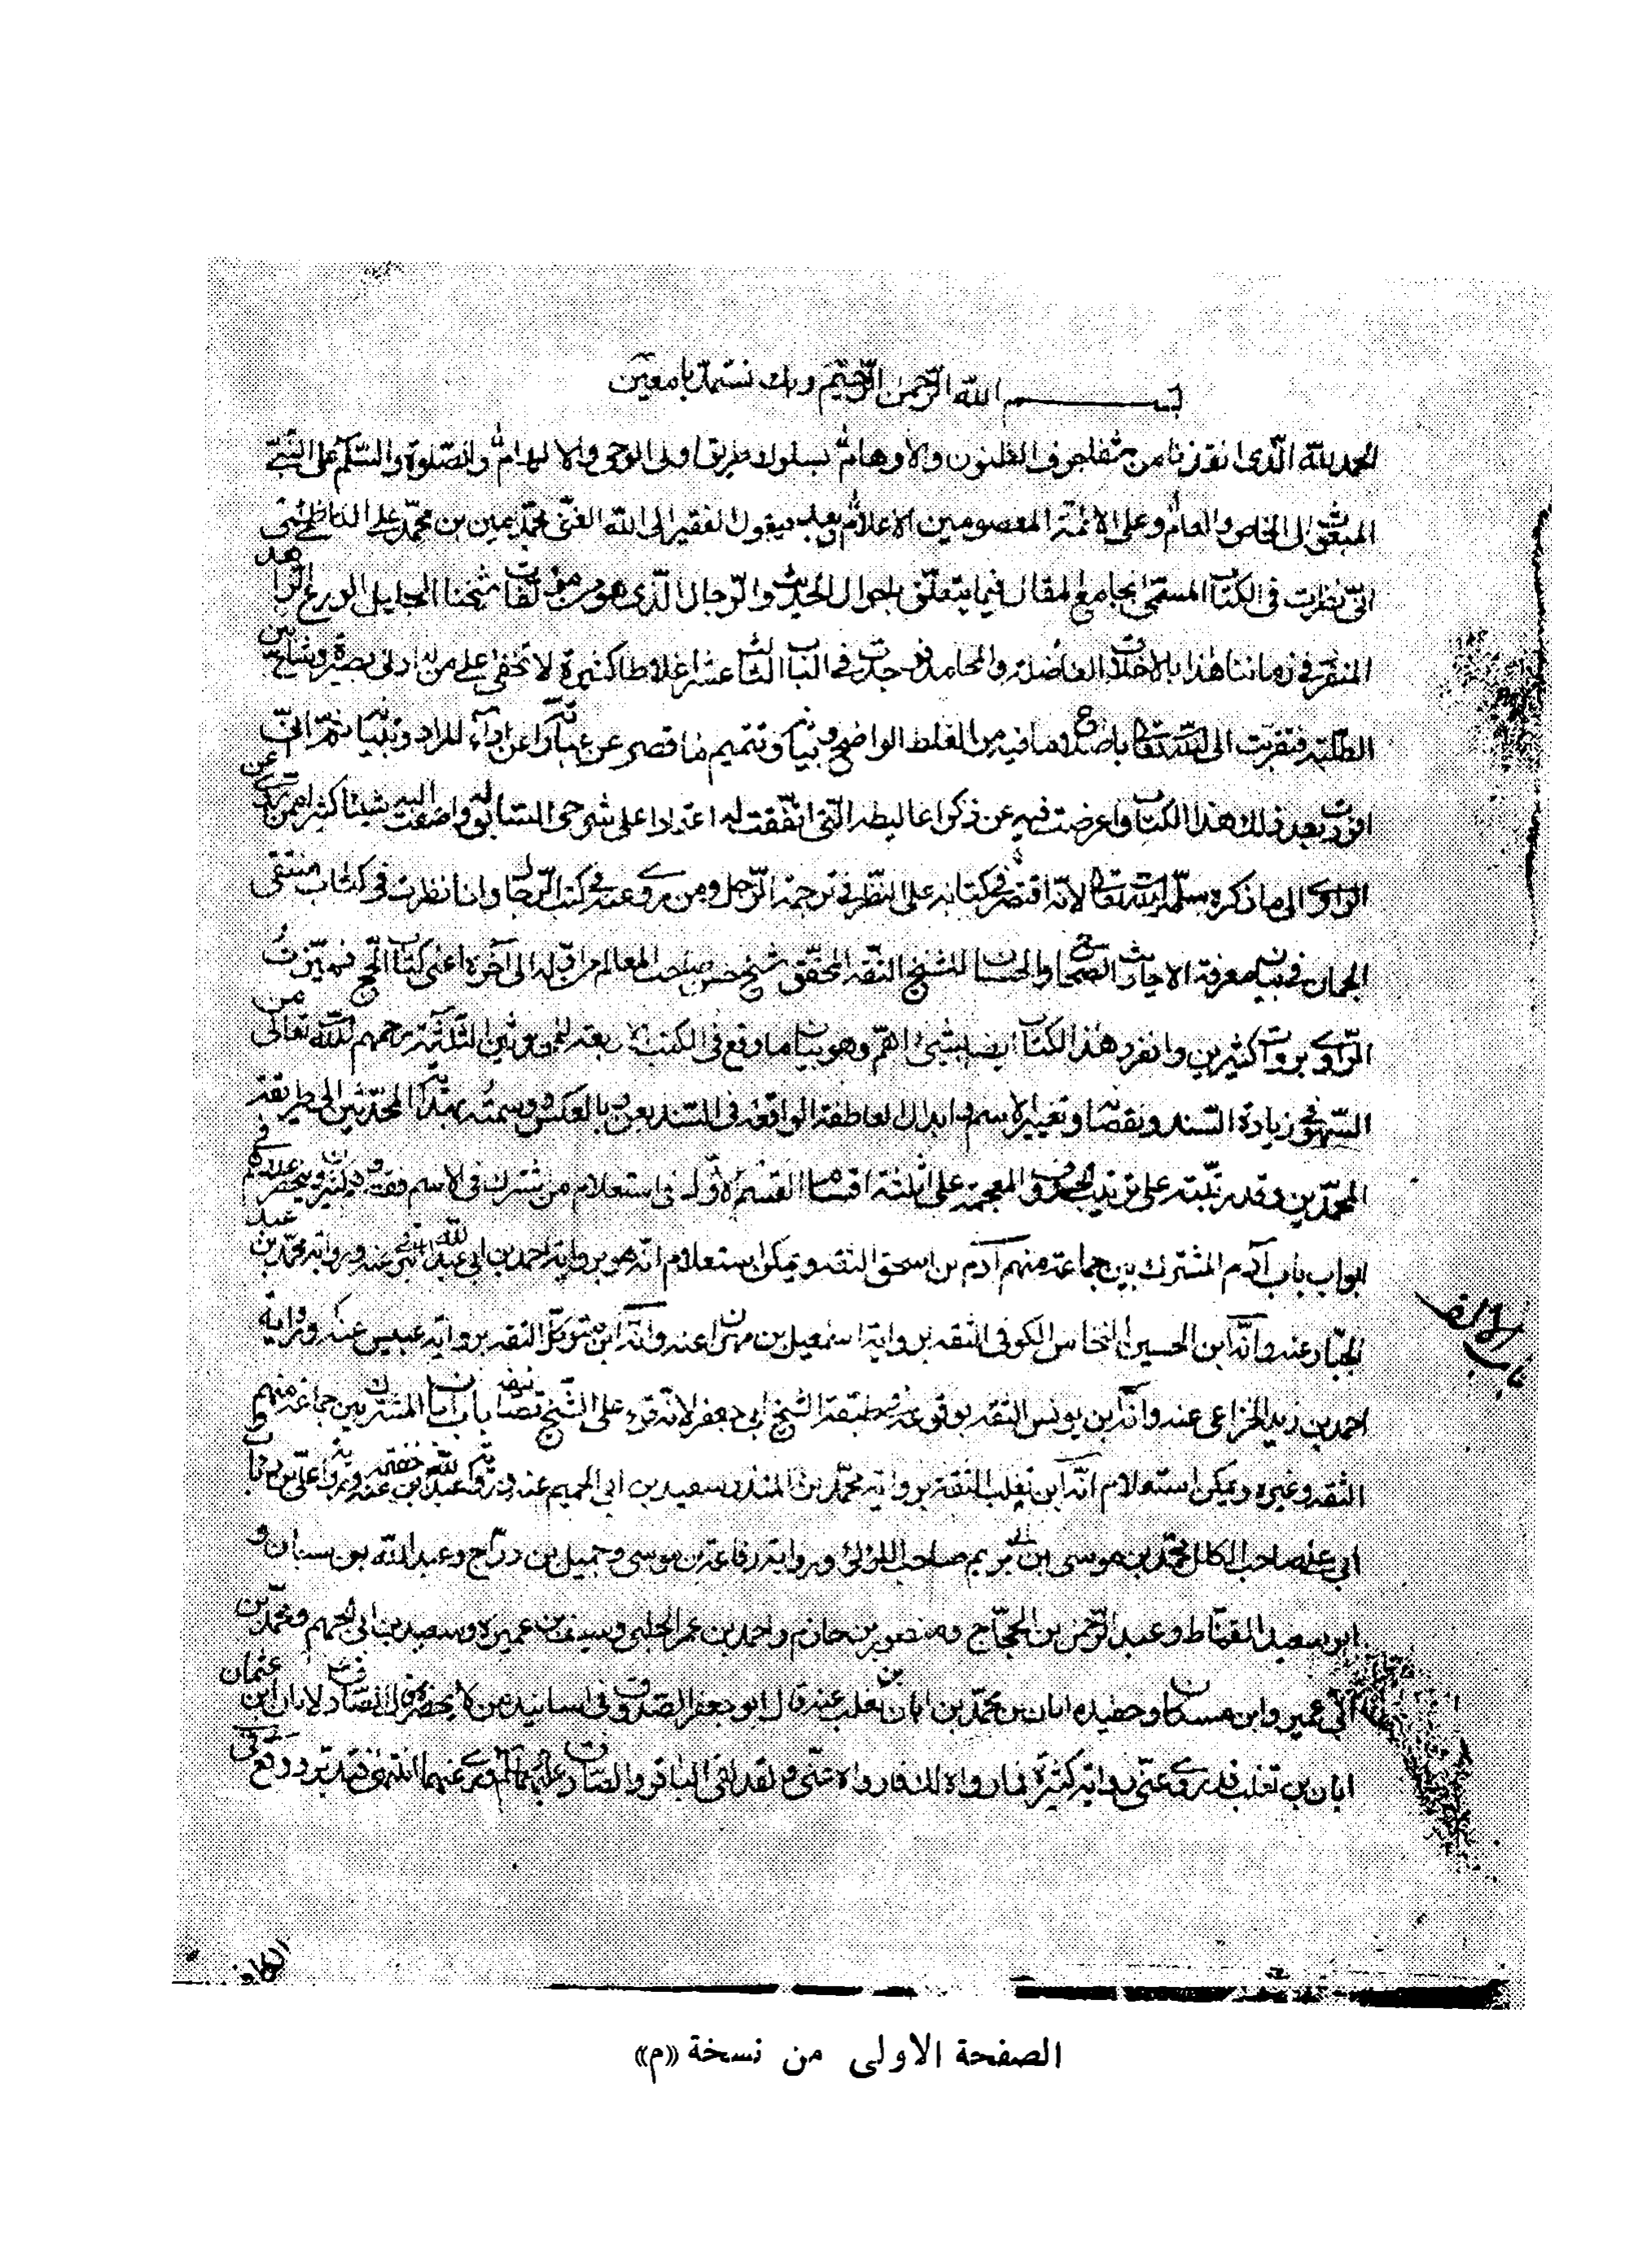 بسم الله الرحمن الرحيم وبك نستمد يا معين
الحمد لله الذى انقذنا من الظنون والأوهام بسلوك طريق اولى الوحى والالهام والصلوة والسلام على النبى
المبعوث الى الخاص والعام وعلى الائمة المعصومين الاعلام وبعد فيقول الفقير الى الله الغنى محمد امين بن محمد على الكاظمى
انى نظرت فى الكتاب المسمى بجامع المقال فيما يتعلق باحوال الحديث والرجال الذى هو من مؤلفات شيخنا الجليل الورع الزاهد
المنفرد فى زماننا هذا بالاخلاق الفاضلة والمحامد فوجدت فى الباب الثانى عشر اغلاطا كثيرة لا تخفى على من له ادنى بصيرة وشاع بين
الطلبة فتقربت الى الله تعالى باصلاح ما فيه من الغلط الواضح وبيانه وتتميم ما قصر عن عباراته عن اداء المراد وتبيانه ثم انى
افردت بعد ذلك هذا الكتاب واعرضت فيه عن ذكر اغاليطه التى اتفقت له اعتمادا على شرحى السابق واضفت اليه شيئا كثيرا من
الراوى الى ما ذكره سلمه الله تعالى لانه اقتصر فى كتابه على النظر فى ترجمة الرجل ومن روى عنه فى كتب الرجال وانا نظرت فى كتاب منتقى
الجمان فى بيان معرفة الاحاديث الصحاح والحسان للشيخ الثقة المحقق شيخ حسن صاحب المعالم من اوله الى آخره اعنى كتاب الحج فميزت
الراوى بروايات كثيرين وانفرد هذا الكتاب ايضا بشىء اهم وهو بيان ما وقع فى الكتب الاربعة للمحدثين الثلثة رحمهم الله تعالى من
السهو فى زيادة السند ونقصانه وتغيير الاسم وابدال العاطفة الواقعة فى السند بعن وبالعكس وسميته بهداية المحدثين الى طريقة
المحمدين وقد رتبته على ترتيب الحروف المعجمة على ثلثة اقسام القسم الاول فى استعلام من شترك فى الاسم فقط
ابواب باب آدم المشترك بين جماعة منهم آدم بن اسحق الثقة ويمكن استعلام انه هو برواية احمد بن ابى عبد الله البرقى عنه ورواية محمد بن عبد
الجبار عنه وانه ابن الحسين النخاس الكوفى الثقة برواية اسمعيل بن مهران عنه وانه ابن المتوكل الثقة برواية عبيس عنه ورواية
احمد بن زيد الخزاعى عنه وانه ابن يونس الثقة بوقوعه فى طبقة الشيخ ابى جعفر لانه قرء على الشيخ تصانيفه باب ابان المشترك بين جماعة منهم
الثقة وغيره ويمكن استعلام انه ابن تغلب الثقة برواية محمد بن المنذر بن سعيد بن ابى الجهم عنه ورواية عبد الله بن خفقة عنه ورواية على بن رئاب و
ابى على صاحب الكلل ومحمد بن موسى بن ابى مريم صاحب اللؤلؤ ورواية رفاعة بن موسى وجميل بن دراج وعبد الله بن سنان و
ابن سعيد القماط وعبد الرحمن بن الحجاج ومنصور بن حازم واحمد بن عمر الحلبى وسيف بن عميرة وسعيد بن ابى الجهم ومحمد بن
ابى عمير وابن مسكان وحفيده ابان بن محمد بن ابان بن تغلب عنه قال ابو جعفر الصدوق فى اسانيد من لا يحضره قال الصادق لابان ابن عثمان
ابان بن تغلب قد روى عنى رواية كثيرة فما رواه لك فاروه عنى ولقد لقى الباقر والصادق عليهما السلام وروى عنهما انتهى
باب الالف
الصفحة الاولى من نسخة ((م))